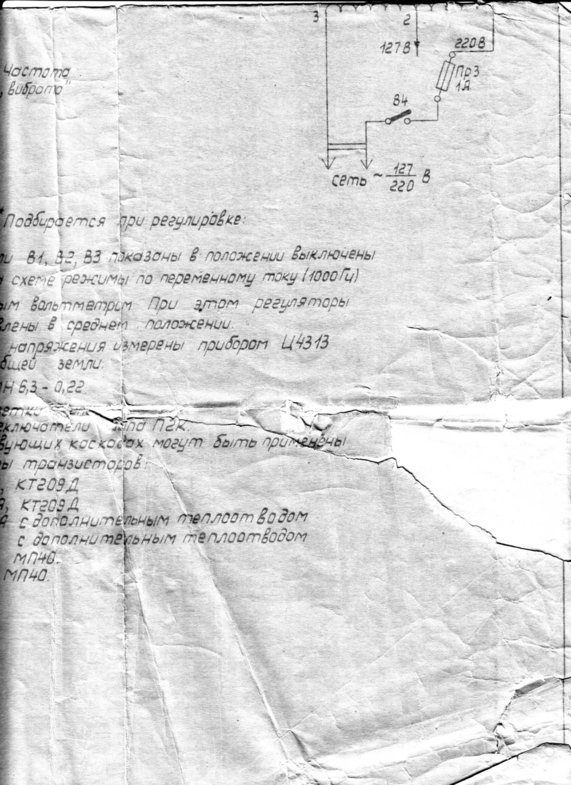 3 2
127В 220В
Пр3
1А
В4
сеть ~ 127/220 В
Частота
вибрато"
* Подбирается при регулировке.
ли В1, В2, В3 показаны в положении выключены
схеме режимы по переменному току (1000Гц)
ым вольтметром При этом регуляторы
влены в среднем положении.
напряжения измерены прибором Ц4313
общей земли.
Н 6,3 - 0,22
ключатели типа П2К.
вующих каскадах могут быть применены
ы транзисторов:
КТ209Д
, КТ209Д
с дополнительным теплоотводом
с дополнительным теплоотводом
МП40.
МП40.